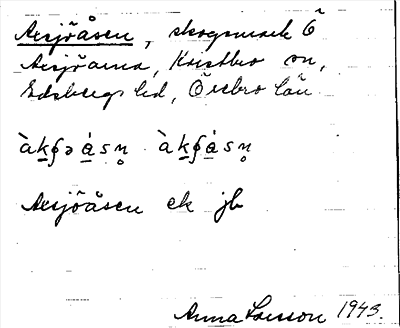 Axsjöåsen, skogsmark Ö
Axsjöarna, Knistbro sn,
Edsbergs hd, Örebro län
Axsjöåsen ek jb
Anna Larsson 1943.